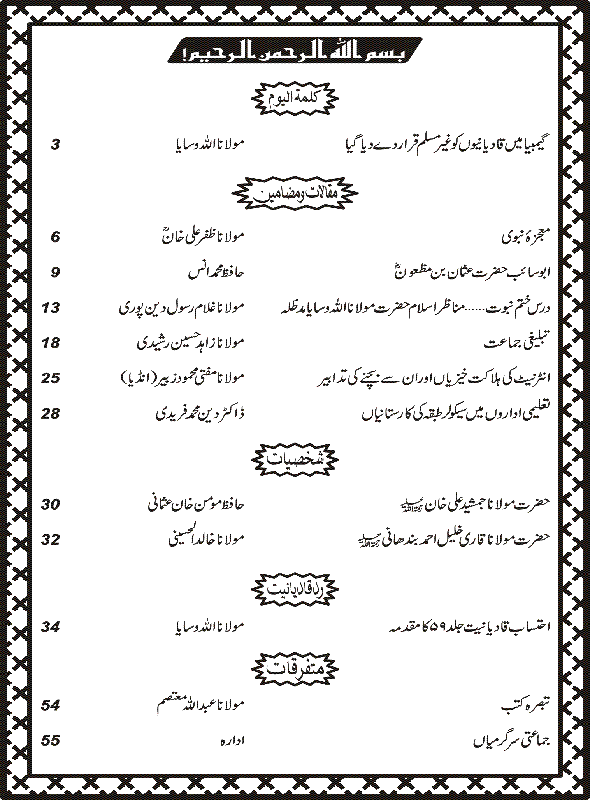 بسم اللہ الرحمن الرحیم!
کلمۃ الیوم
گیمبیا میں قادیانیوں کو غیر مسلم قرار دے دیا گیا مولانا اللہ وسایا 3
مقالات ومضامین
معجزۂ نبوی مولانا ظفر علی خانؒ 6
ابوسائب حضرت عثمان بن مظعونؓ حافظ محمد انس 9
درس ختم نبوت......مناظر اسلام حضرت مولانا اللہ وسایا مدظلہ مولانا غلام رسول دین پوری 13
تبلیغی جماعت مولانا زاہد حسین رشیدی 18
انٹرنیٹ کی ہلاکت خیزیاں اور ان سے بچنے کی تدابیر مولانا مفتی محمود زبیر (انڈیا) 25
تعلیمی اداروں میں سیکولر طبقہ کی کارستانیاں ڈاکٹر دین محمد فریدی 28
شخصیات
حضرت مولانا جمشید علی خان رحمۃ اللہ علیہ حافظ مومن خان عثمانی 30
حضرت مولانا قاری خلیل احمد بندھانی رحمۃ اللہ علیہ مولانا خالد الحسینی 32
رد قادیانیت
احتساب قادیانیت جلد ۵۹ کا مقدمہ مولانا اللہ وسایا 34
متفرقات
تبصرہ کتب مولانا عبداللہ معتصم 54
جماعتی سرگرمیاں ادارہ 55